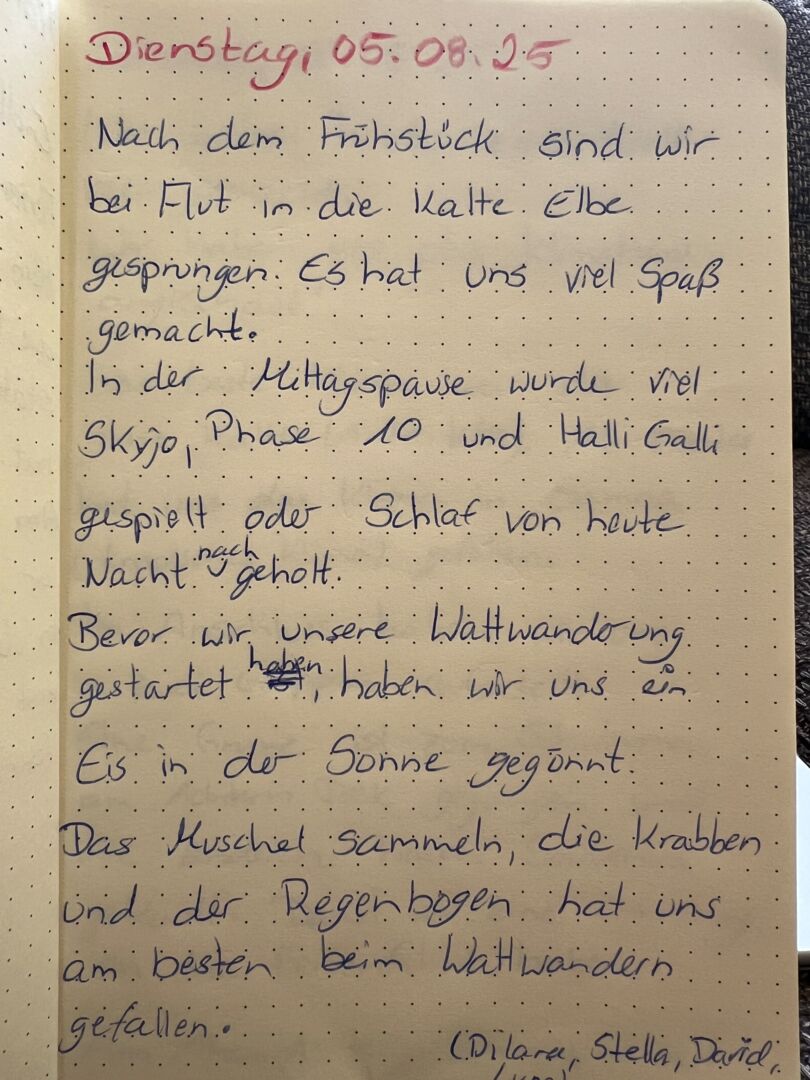 Dienstag, 05.08.25
Nach dem Frühstück sind wir
bei Flut in die kalte Elbe
gesprungen. Es hat uns viel Spaß
gemacht.
In der Mittagspause wurde viel
Skyjo, Phase 10 und Halli Galli
gespielt oder Schlaf von heute
Nacht nach geholt.
Bevor wir unsere Wattwanderung
gestartet haben, haben wir uns ein
Eis in der Sonne gegönnt.
Das Muschel sammeln, die Krabben
und der Regenbogen hat uns
am besten beim Wattwandern
gefallen.
(Dilara, Stella, David,